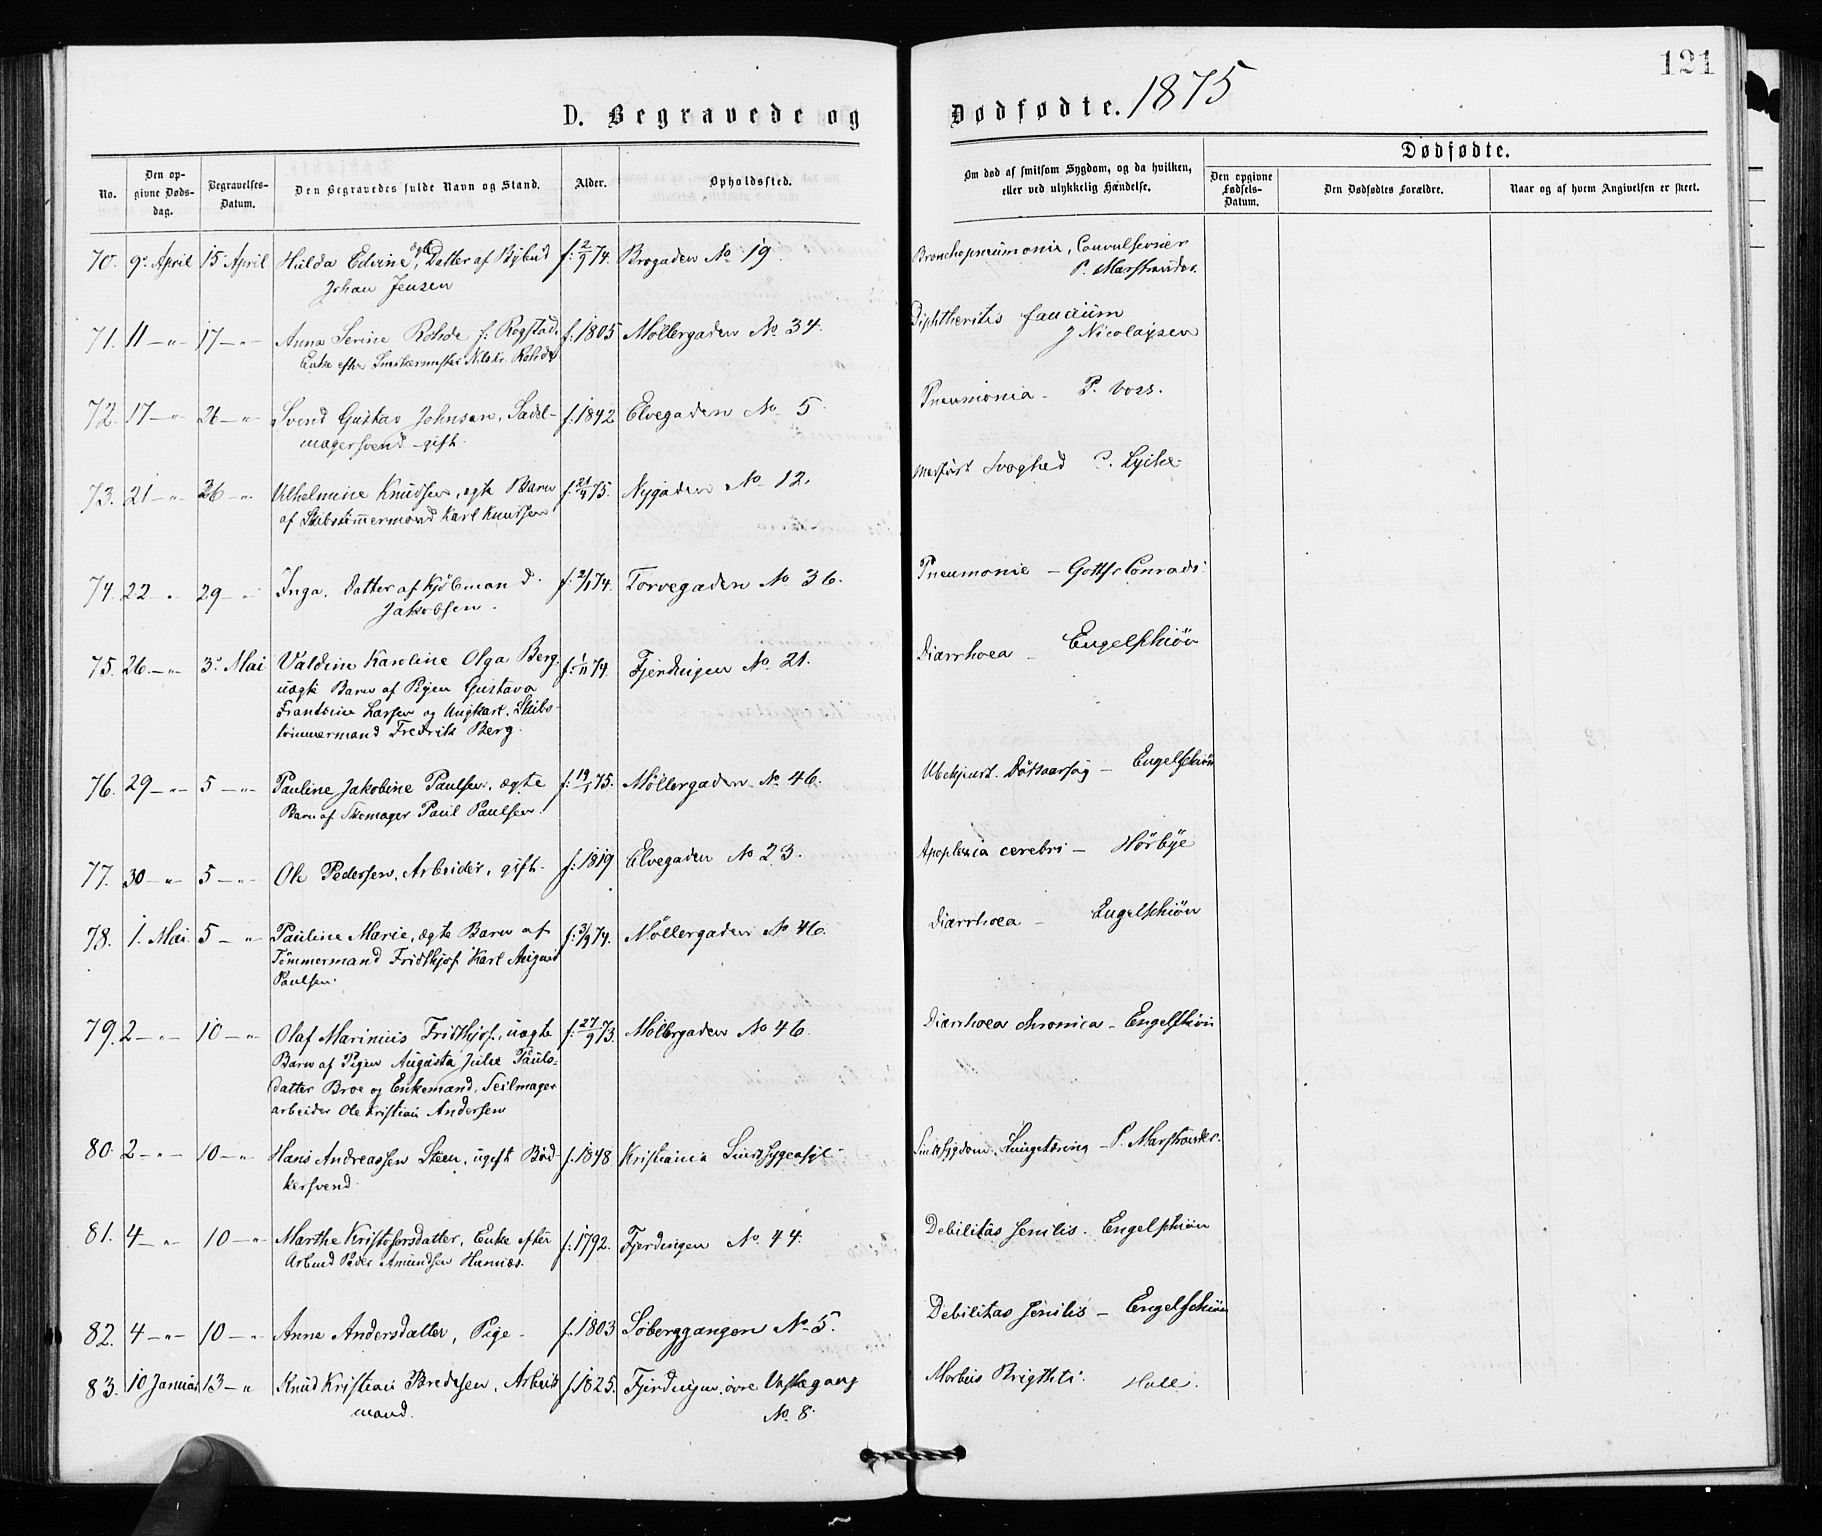 121
D. Begravede og Dødfødte. 1875
No.
Den op-
givne Døds-
dag.
Begravelses-
Datum.
Den Begravedes fulde Navn og Stand.
Alder.
Opholdssted.
Om død af smitsom Sygdom, og da hvilken,
eller ved ulykkelig Hændelse.
Dødfødte.
Den opgivne
Fødsels-
Datum.
Den Dødfødtes Forældre.
Naar og af hvem Angivelsen er skeet.
70. 9. April 15 April Hulda Edvine, ægte Datter af Bybud f: 2/9 74. Brogaden No 19. Bronchopneumonie, Convulsioner
Johan Jensen P. Marstrander.
71. 11 -"- 17 -"- Anna Serine Rohde f. Rogstad. f. 1805 Møllergaden No 34. Diphtheritis faucium
Enke efter Snekkermester Rohde J Nicolaysen
72. 17 -"- 26 -"- Svend Gustav Johnsen, Sadel- f. 1842 Elvegaden No 5 Pneumonia - P. Voss.
magersvend gift.
73. 21 -"- 26 -"- Vilhelmine Knudsen, ægte Barn f. 21/4 75. Nygaden No 12. Medfødt Svaghed
af Skibstømmermand Karl Knudsen
74. 22 " 29 -"- Inga. Datter af Kjøbmand f. 2/1 74. Torvegaden No 36. Pneumonie - Gottfr Conradi.
Jakobsen.
75. 26 -"- 3. Mai Valdine Karoline Olga Berg f. 1/11 74. Fjerdingen No 21. Diarrhoea - Engelschiøn
uægte Barn af Pigen Gustava
Frantsine Larsen og Ungkarl, Skibs-
tømmermand Fredrik Berg.
76. 29 -"- 5 -"- Pauline Jakobine Paulsen, ægte f. 19/1 75. Møllergaden No 46. Ubekjendt Dødsaarsag - Engelschiøn
Barn af Skomager Paul Paulsen.
77. 30 -"- 5 -"- Ole Pedersen, Arbeider, gift. f. 1819 Elvegaden No 23. Apoplexia cerebri - Hørbye
78. 1. Mai 5 -"- Pauline Marie, ægte Barn af f. 3/9 74. Møllergaden No 46. Diarrhoea - Engelschiøn
Tømmermand Fridthjof Karl August
Paulsen.
79. 2 -"- 10 -"- Olaf Marinius Fridthjof, uægte f. 27/9 73. Møllergaden No 46. Diarrhoea chronica - Engelschiøn
Barn af Pigen Augusta Julie Pauls-
datter Broe og Enkemand, Seilmager
arbeider Ole Kristian Andersen
80. 2 -"- 10 -"- Hans Andreassen Steen, ugift Bød- f. 1848 Kristiania Sindssygeasyl - Sindssygdom, Lungetæring - P. Marstrander.
kersvend
81. 4 -"- 10 -"- Marthe Kristofersdatter, Enke efter f. 1792. Fjerdingen No 44. Debilitas senilis. Engelschiøn
Arbmd Peder Amundsen
82. 4 -"- 10 -"- Anne Andersdatter, Pige - f. 1803 Søberggangen No 5. Debilitas senilis - Engelschiøn
83. 10 Januar 13 -"- Knud Kristian Bredesen, Arbeids f. 1825. Fjerdingen, øvre No 8. Morbus Brigthii.
mand.